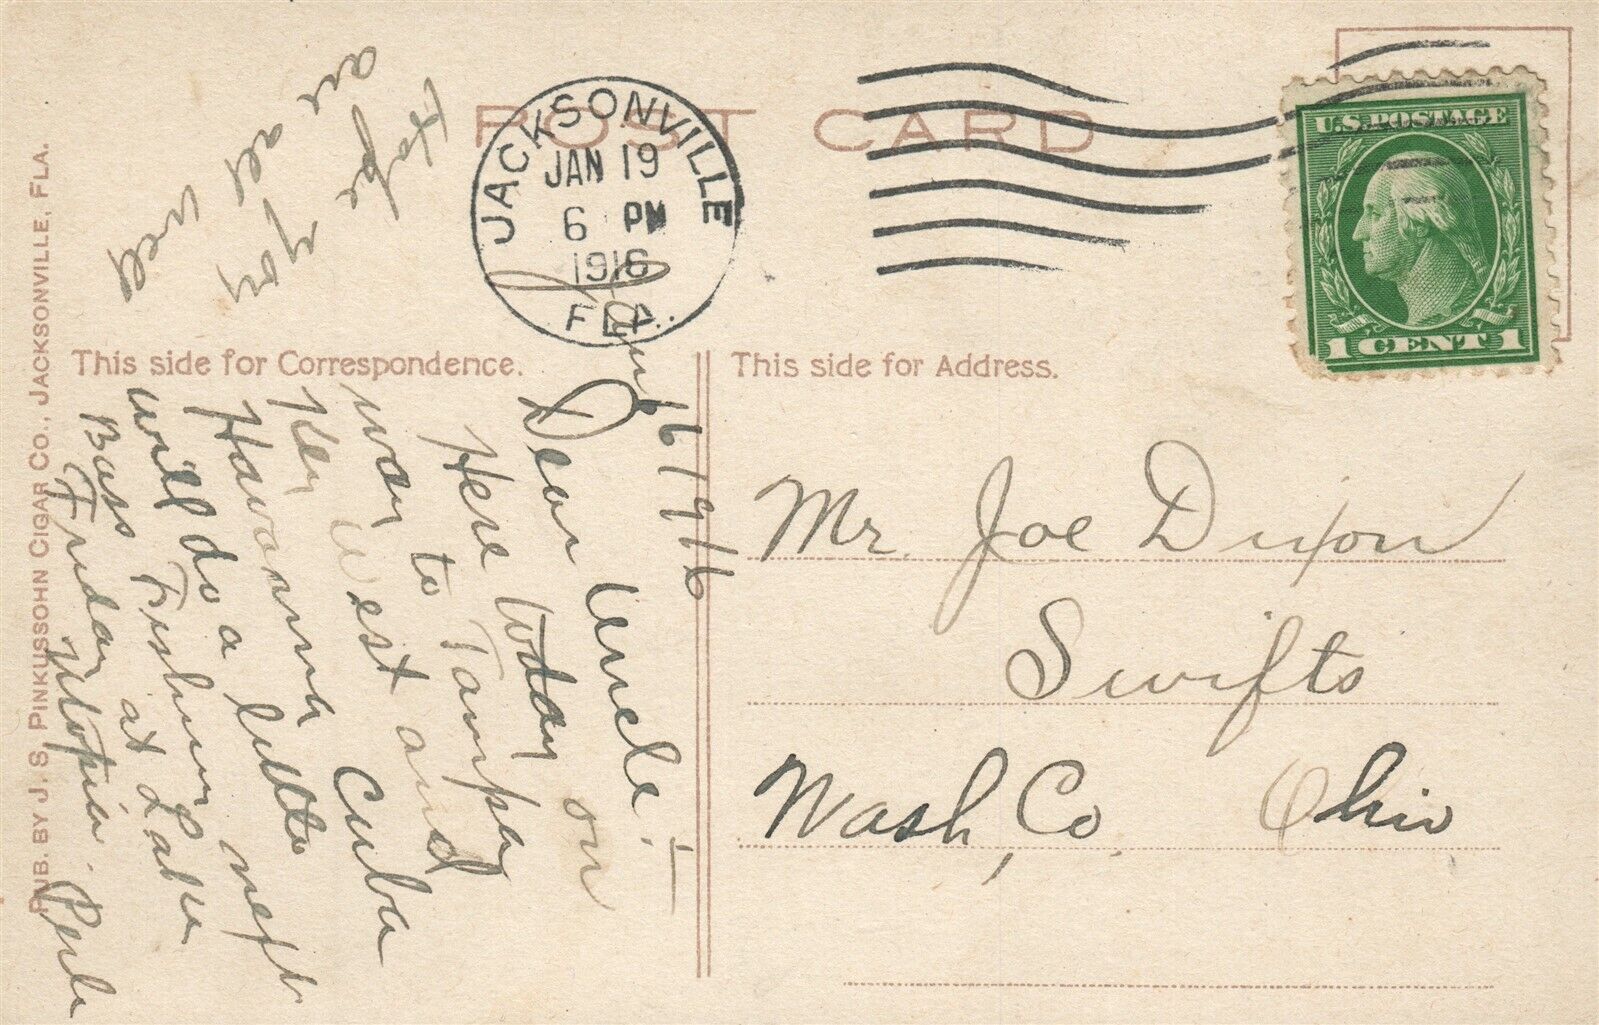 POST CARD
JACKSONVILLE
JAN 19
6 PM
1916
FLA.
U.S. POSTAGE
1 CENT 1
This side for Correspondence.
This side for Address.
Jan 1916
Dear Uncle:
Here today on
way to Tampa
Key West and
Havanna Cuba
will do a little
Bass Fishing next
Friday at Lake
Utopia. Perle
Hope
you
are all
well
Mr. Joe Dixon
Swifts
Wash, Co. Ohio
PUB. BY J. S. PINKUSSOHN CIGAR CO., JACKSONVILLE, FLA.